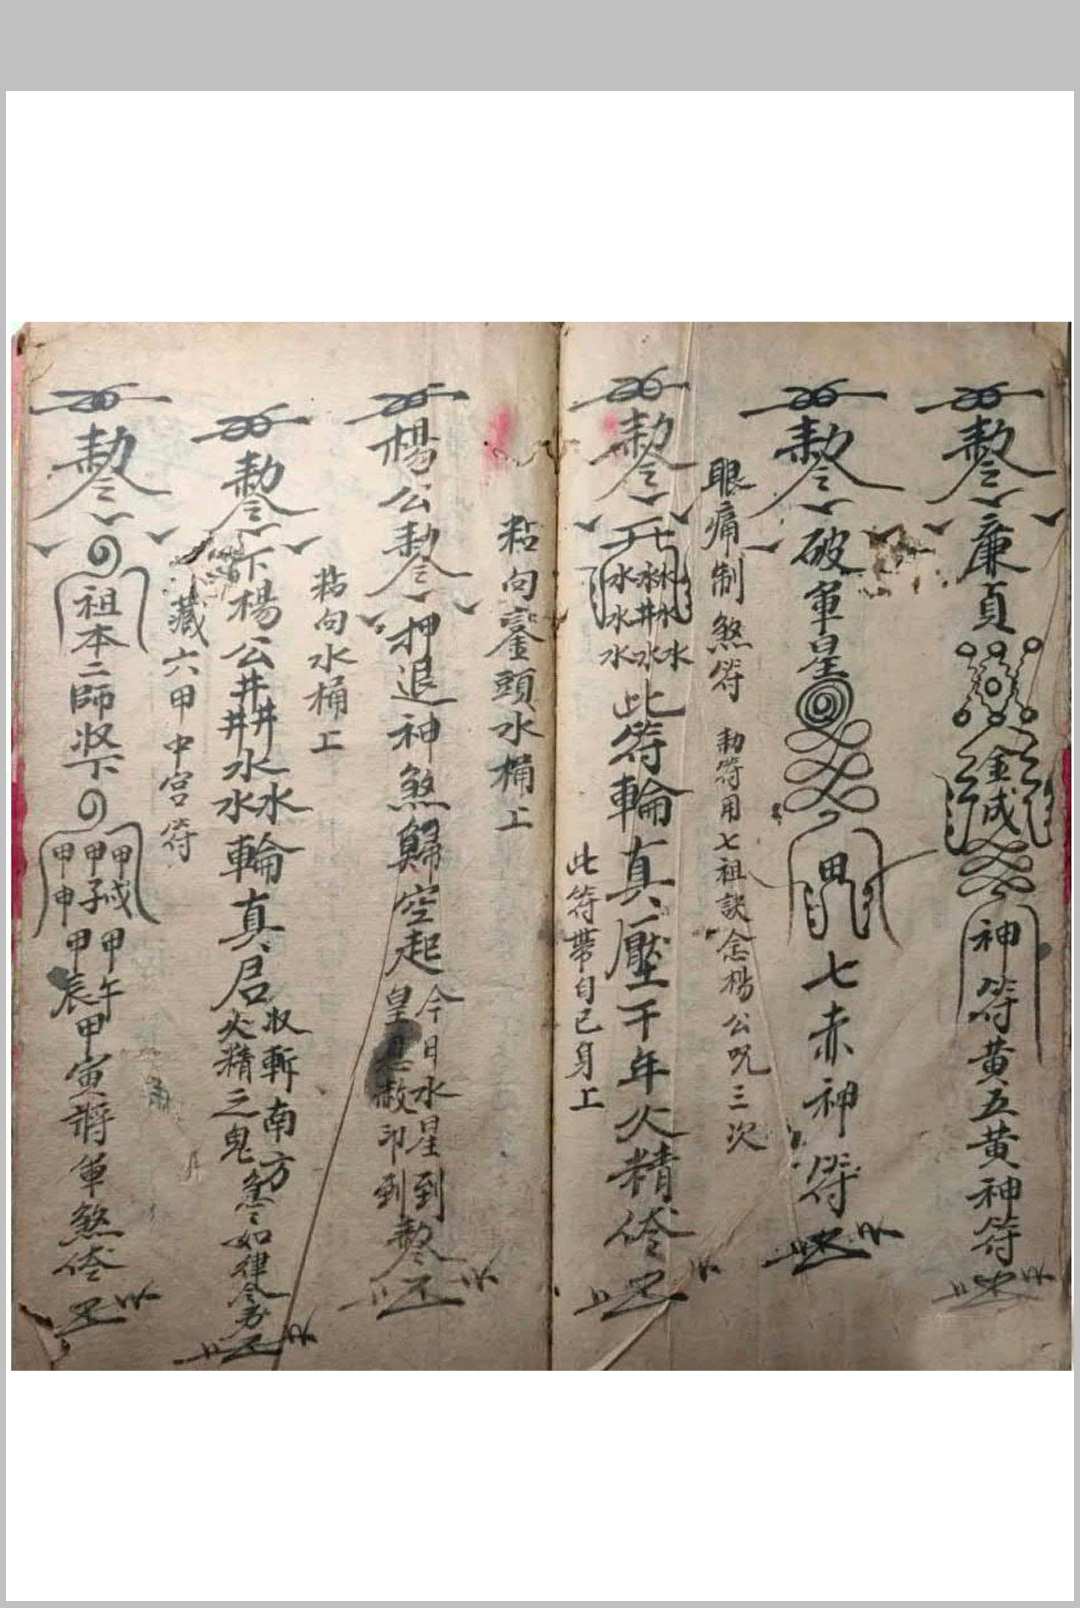 敕令廉貞金成神符黃五黃神符
敕令破軍星甲七赤神符
眼痛制煞符 勅符用七祖訣念楊公咒三次
敕令水水水水井水水水水此符輪真壓千年火精
此符帶自己身上
粘向鑾頭水桶上
楊公敕令押退神煞歸空起今日水星到皇赦印到敕令
粘向水桶上
敕令下楊公井井井水水水輪真君收斬南方火精之鬼急如律令
藏六甲中宮符
敕令祖本二師祭下甲子甲戌甲申甲午甲辰甲寅將軍煞